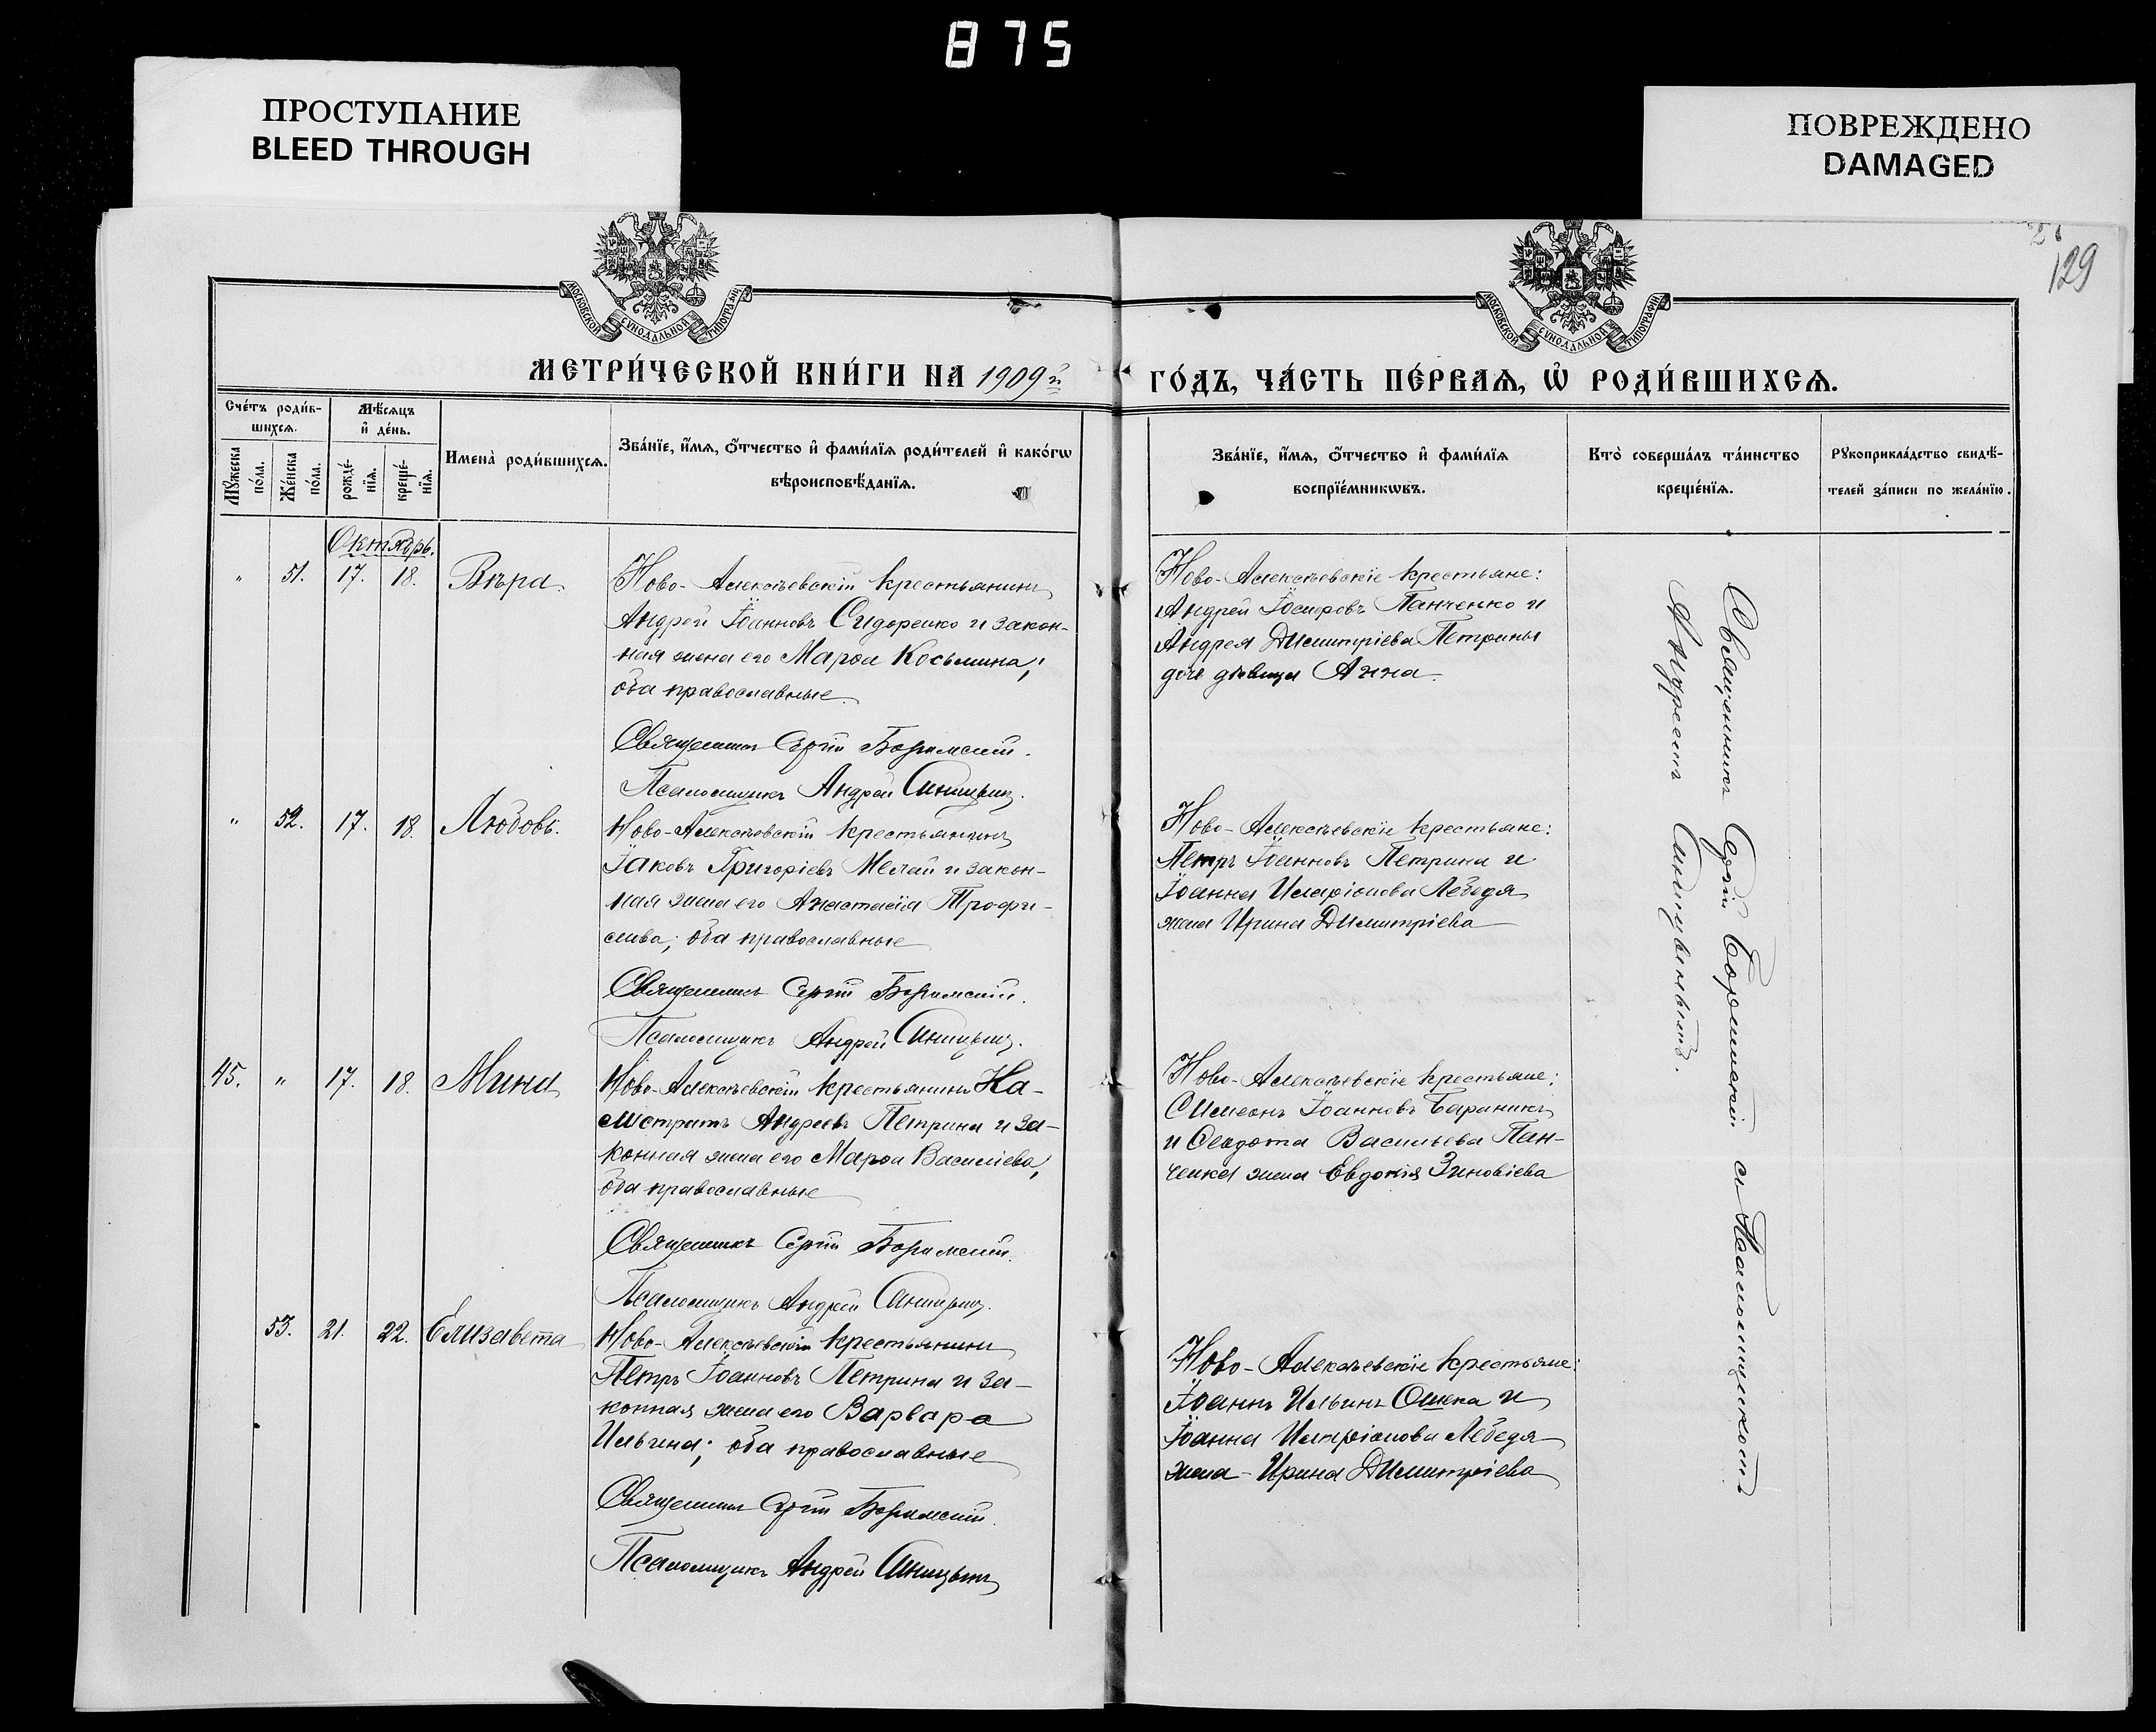 875
ПРОСТУПАНИЕ
BLEED THROUGH
ПОВРЕЖДЕНО
DAMAGED
129
МОСКОВСКОЙ СУНОДАЛЬНОЙ ТИПОГРАФІИ
МОСКОВСКОЙ СУНОДАЛЬНОЙ ТИПОГРАФІИ
МЕТРИ́ЧЕСКОЙ КНИ́ГИ НА 1909 й
ГО́ДЪ, ЧА́СТЬ ПЕ́РВАѦ, Ѽ РОДИ́ВШИХСѦ.
Сче́тъ роди́в-
шихсѧ.
Мꙋ́жеска по́ла.
Же́нска по́ла.
Мѣ́сѧцъ
и҆ де́нь.
рожде́-
нїѧ.
креще́-
нїѧ.
Имена̀ роди́вшихсѧ.
Зва́нїе, и҆́мѧ, ѻ҆́тчество и҆ фами́лїѧ роди́телей и҆ како́гѡ
вѣроисповѣ́данїѧ.
Зва́нїе, и҆́мѧ, ѻ҆́тчество и҆ фами́лїѧ
воспрїе́мникѡвъ.
Кто̀ соверша́лъ та́инство
креще́нїѧ.
Рꙋкоприкла́дство свидѣ́-
телей за́писи по жела́нїю.
Октябрь.
" 51. 17. 18. Вѣра.
Ново-Алексѣевскій крестьянинъ
Андрей Іоанновъ Сидоренко и закон-
ная жена его Марѳа Косьмина;
оба православные.
Священникъ Сергій
Псаломщикъ Андрей Синицынъ.
Ново-Алексѣевскіе крестьяне:
Андрей Іосифовъ Панченко и
Андрея Димитріева Петрины
дочь дѣвица Анна.
" 52. 17. 18. Любовь.
Ново-Алексѣевскій крестьянинъ
Іаковъ Григоріевъ и закон-
ная жена его Анастасія Трофи-
мова; оба православные
Священникъ Сергій
Псаломщикъ Андрей Синицынъ.
Ново-Алексѣевскіе крестьяне:
Петръ Іоанновъ Петрина и
Іоанна Иларіонова Лебедя
жена Ирина Димитріева
45. " 17. 18. Мина
Ново-Алексѣевскій крестьянинъ Ка-
листратъ Андреевъ Петрина и за-
конная жена его Марѳа Василіева,
оба православные
Священникъ Сергій
Псаломщикъ Андрей Синицынъ.
Ново-Алексѣевскіе крестьяне:
Симеонъ Іоанновъ Бараникъ
и Ѳеодота Васильева Пан-
ченка жена Евдокія Зиновіева
53. 21. 22. Елизавета
Ново-Алексѣевскій крестьянинъ
Петръ Іоанновъ Петрина и за-
конная жена его Варвара
Ильина; оба православные
Священникъ Сергій
Псаломщикъ Андрей Синицынъ
Ново-Алексѣевскіе крестьяне:
Іоаннъ Ильинъ и
Іоанна Иларіонова Лебедя
жена - Ирина Димитріева
Священникъ Сергій съ Псаломщикомъ
Андреемъ Синицынымъ.